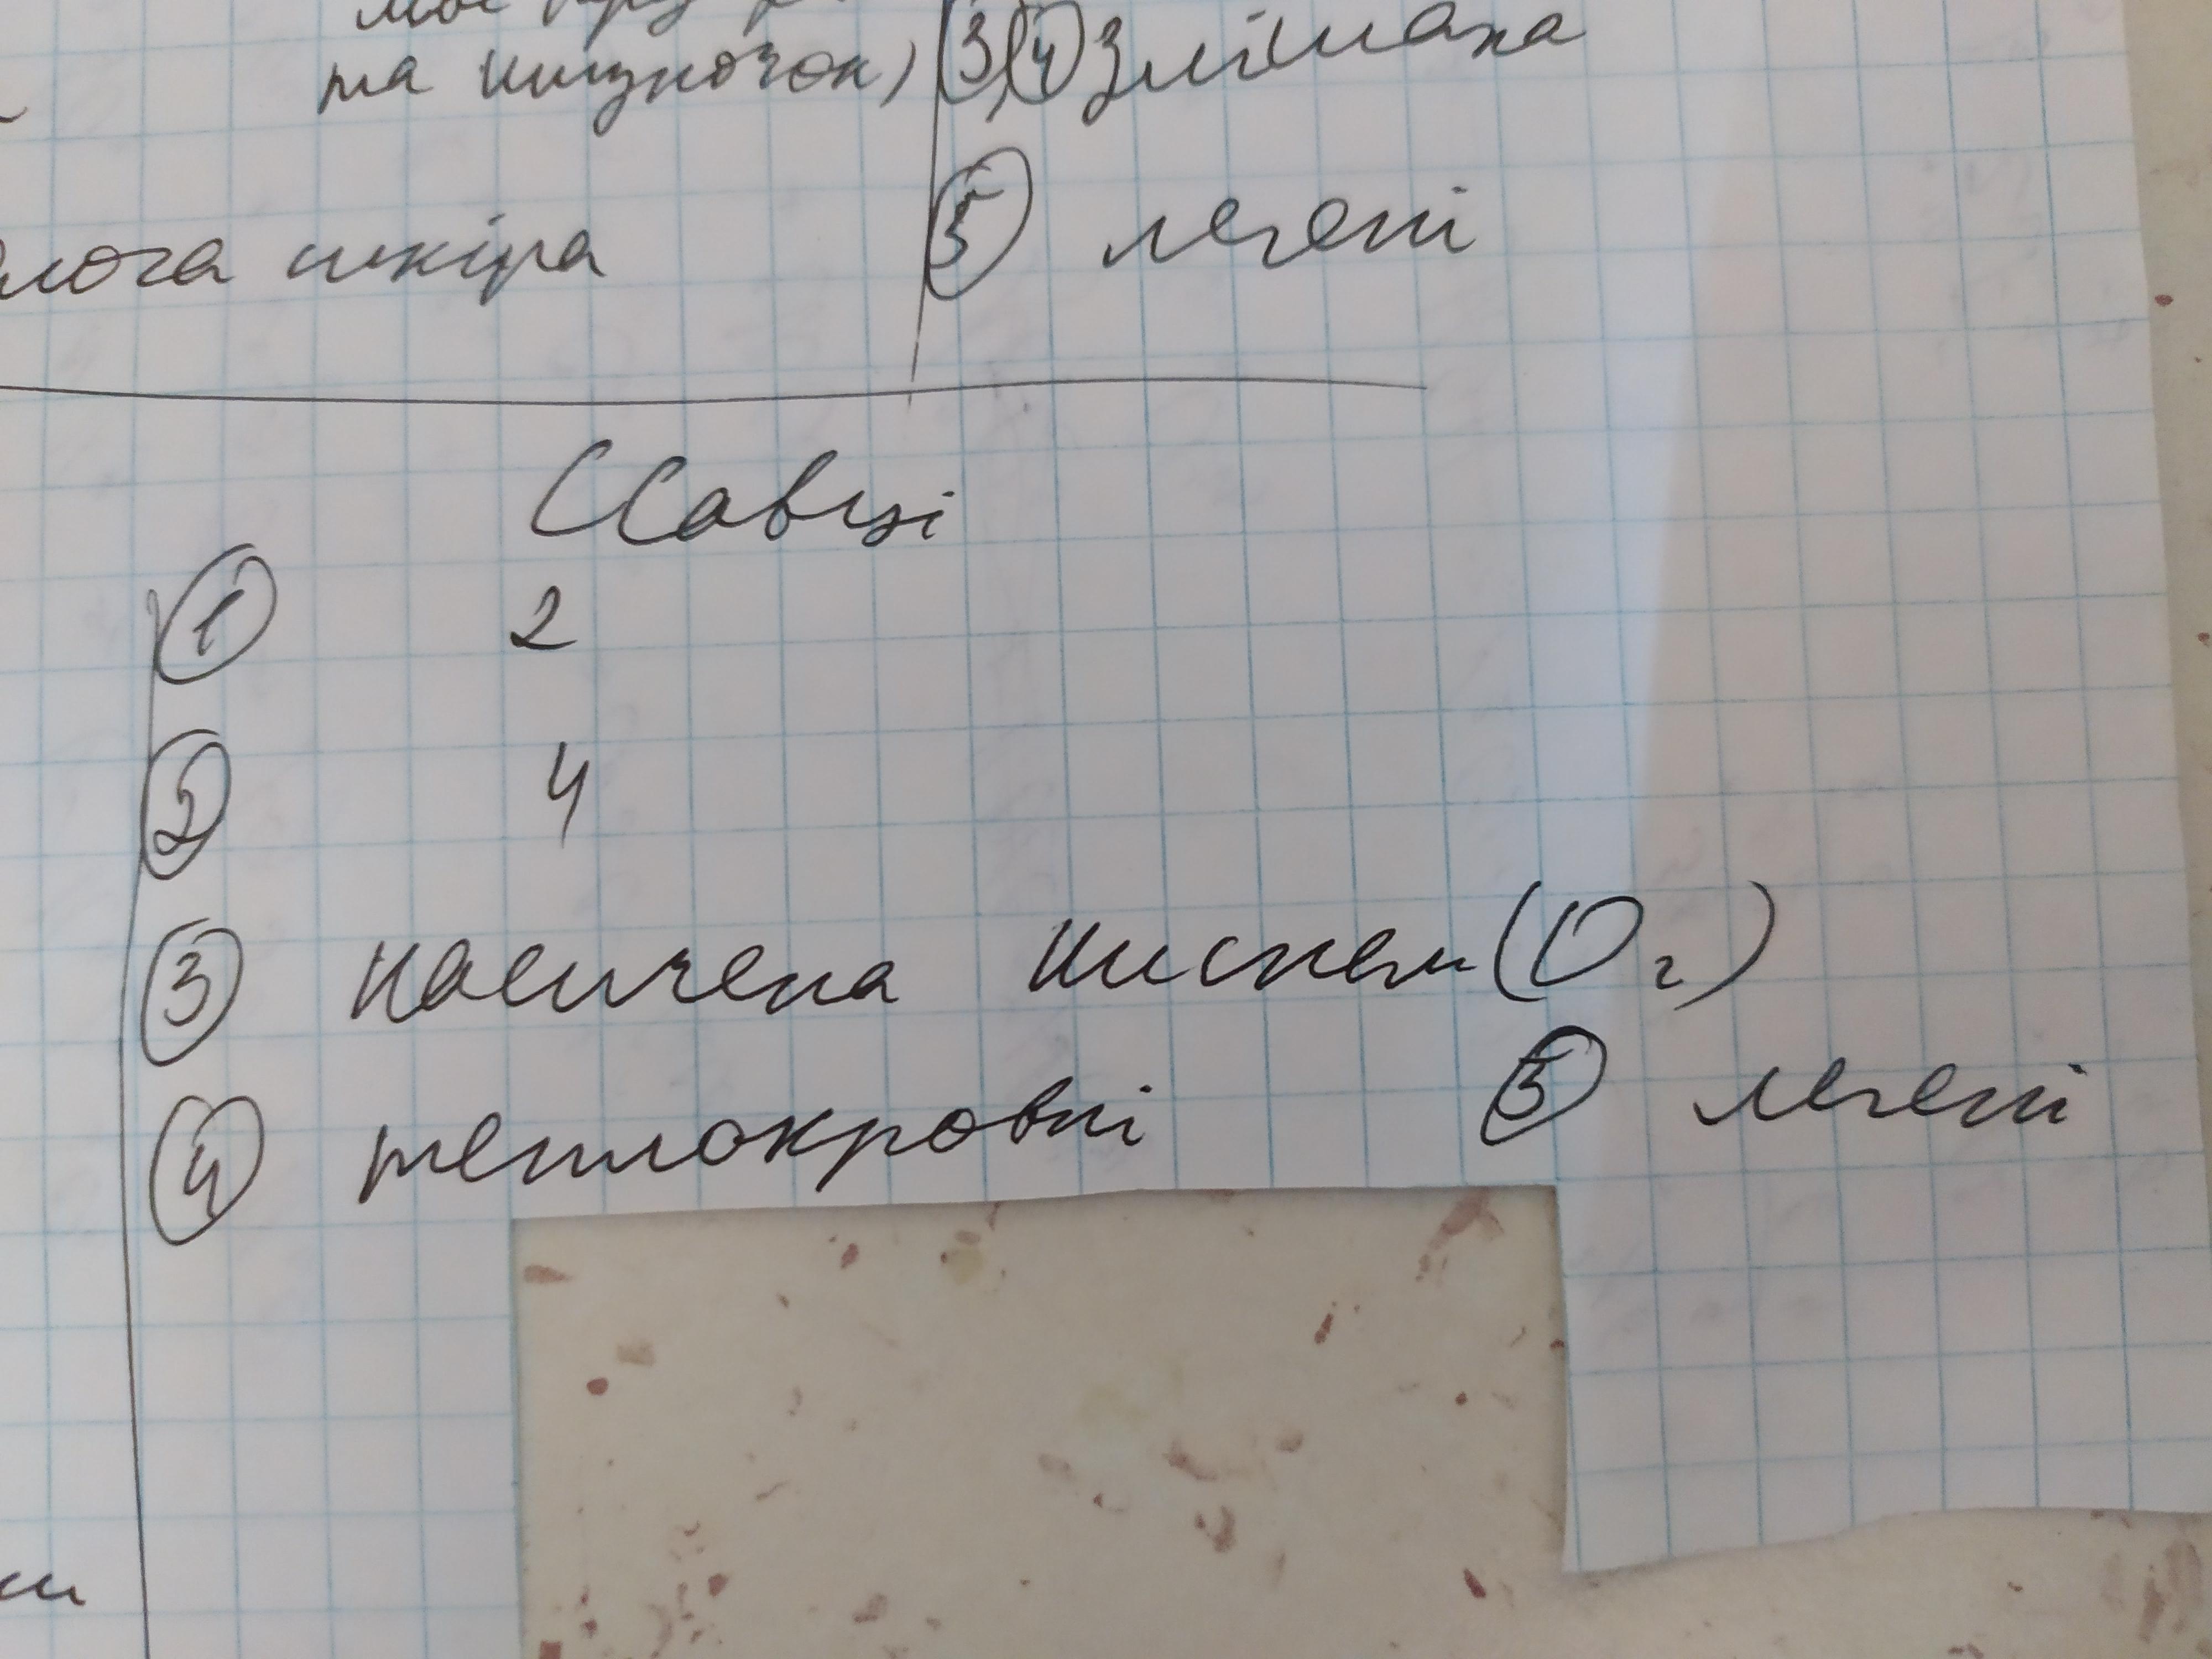 та шлуночок) ③,④ Змішана
шкіра ⑤ легені
Ссавці
① 2
② 4
③ насичена киснем (O₂)
④ теплокровні ⑤ легені